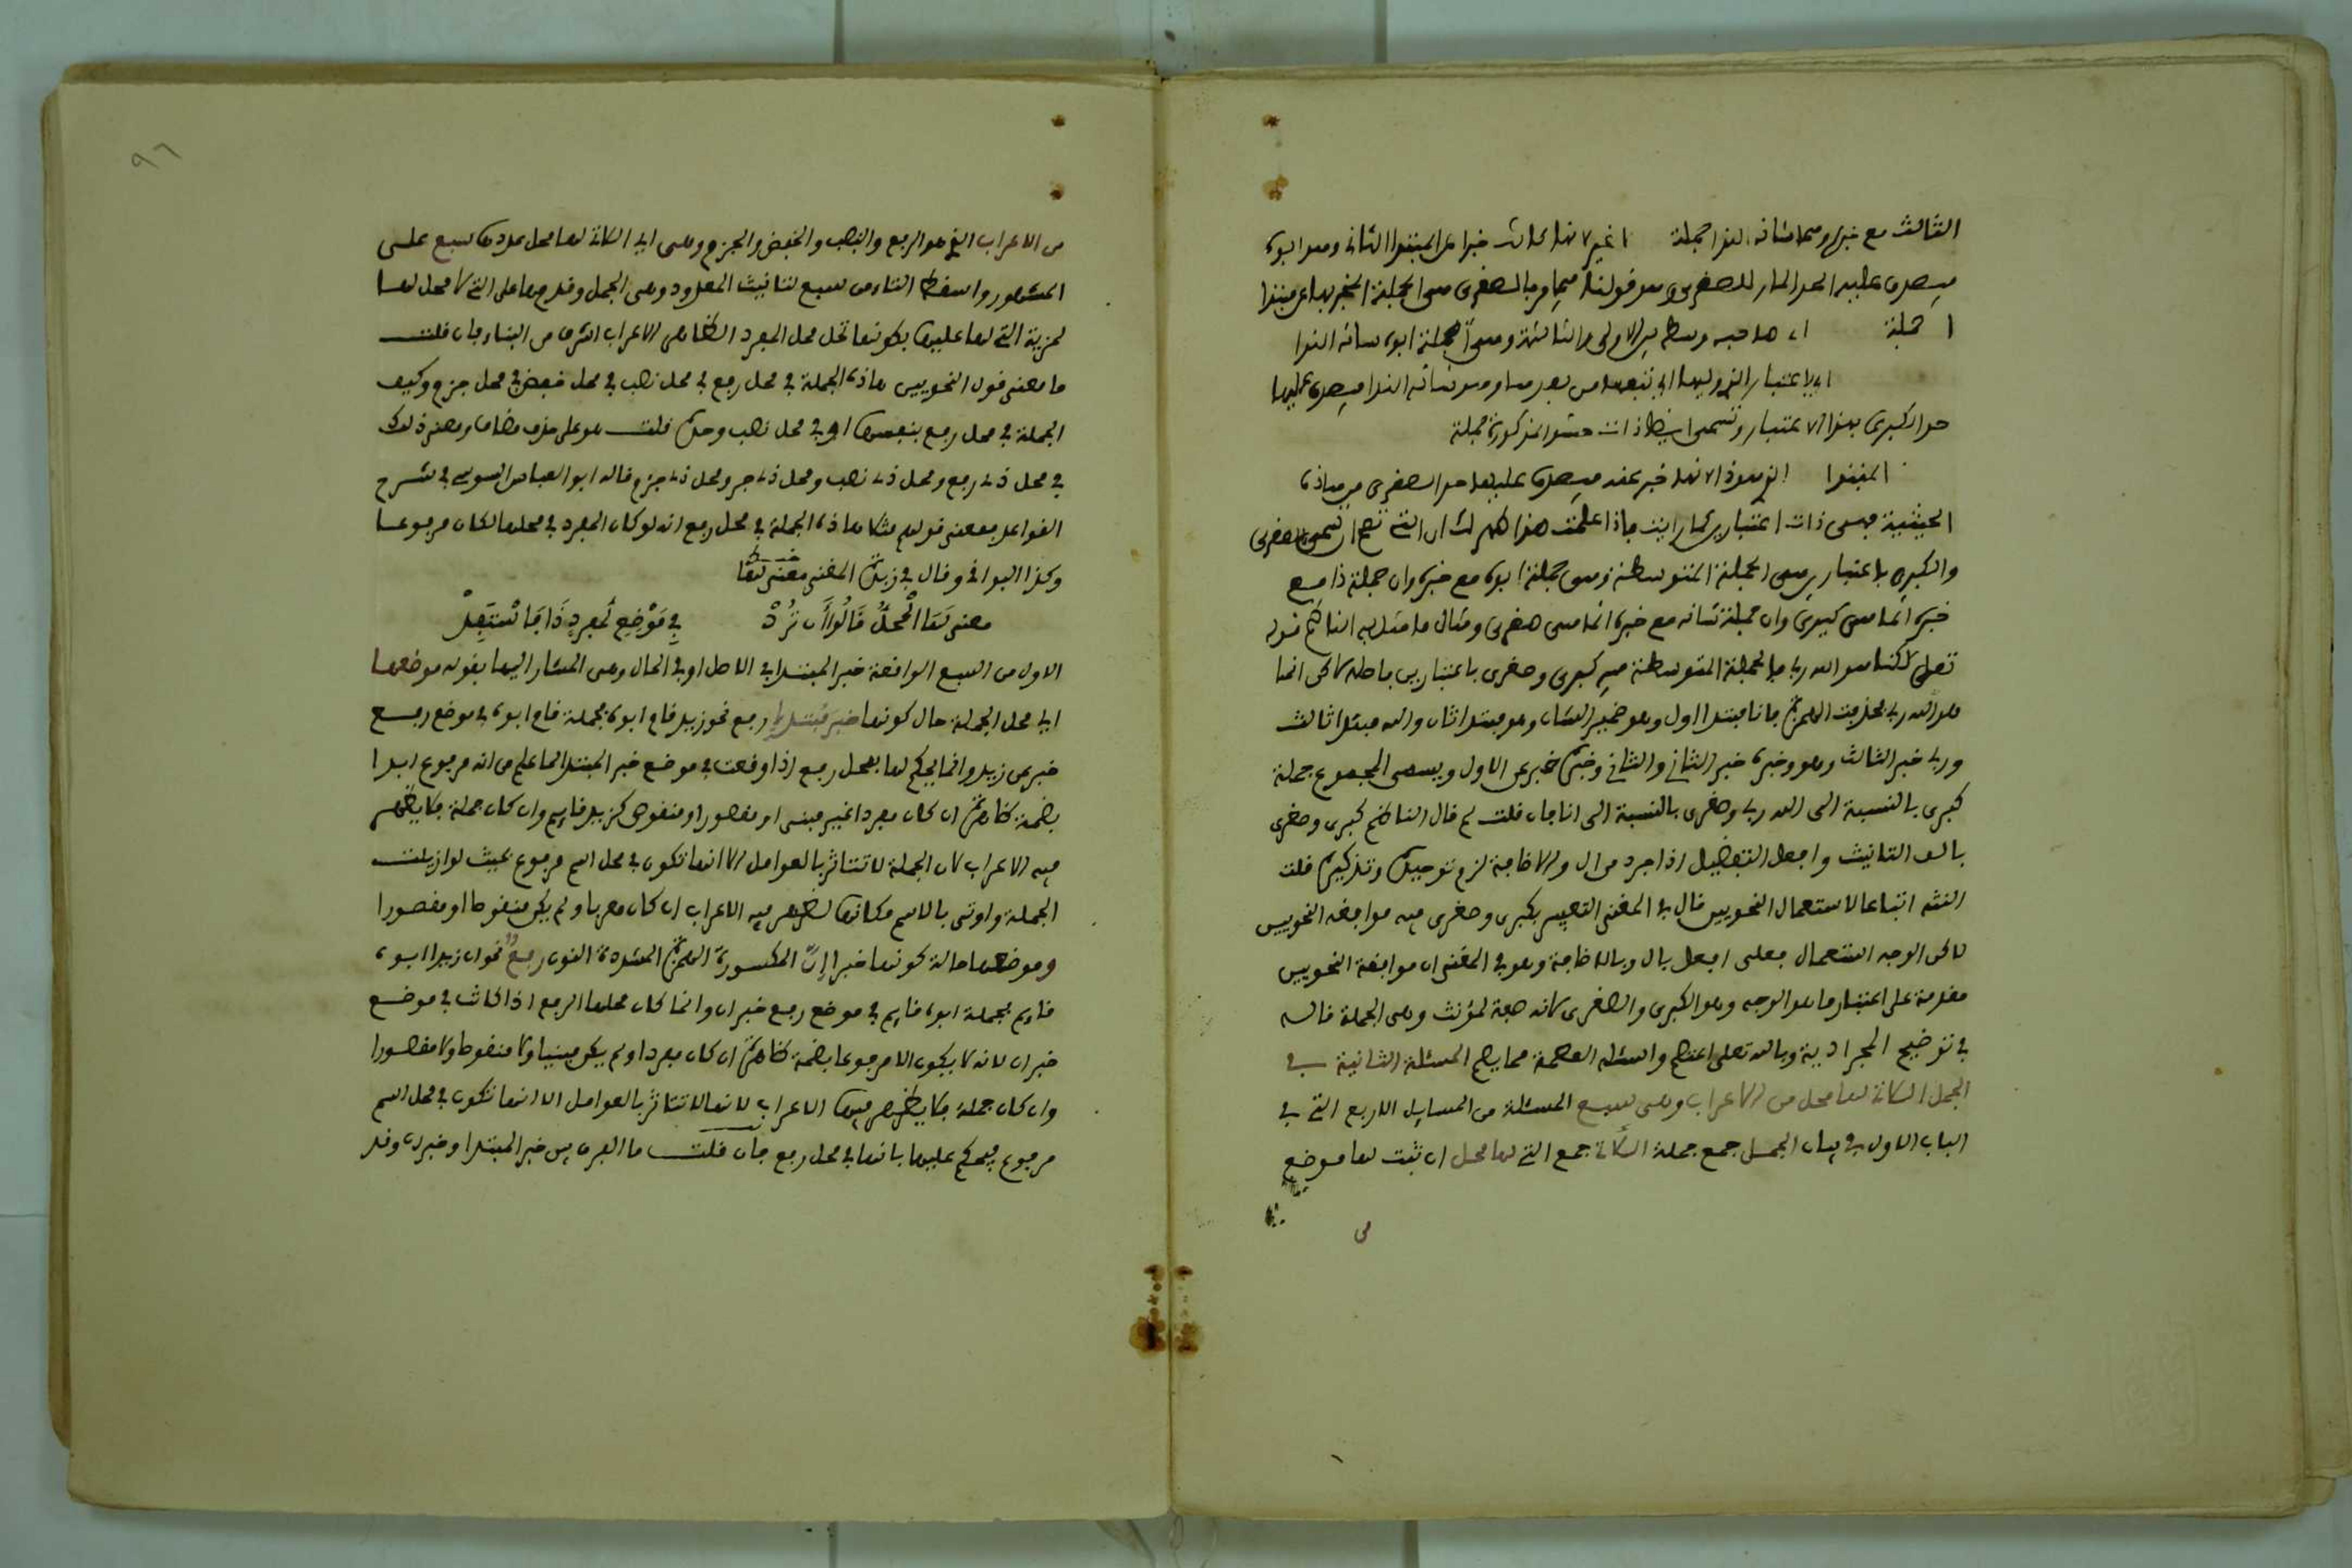 الثالث مع خبره وهما شانه انفرا جملة غير لانها كانت خبرا عن المبتدا الثاني وهو ابوه
فيصدق عليه الحد المار للصغرى وهو قولنا فيما مر بالصغرى هي الجملة المخبر بها عن مبتدا
صاحبه وسط بين الاولى والثالثة وهي جملة ابوه شانه انفرا
حد الكبرى بهذا الاعتبار وتسمى ايضا ذات المذكورة جملة
المبتدا الذي هو ذا لانها خبر عنه فيصدق عليها حد الصغرى من هاذه
الحيثية فهي ذات اعتبارين كما رايت فاذا علمت هذا ظهر لك ان التي تصح ان تسمى بالصغرى
والكبرى باعتبارين هي الجملة المتوسطة وهي جملة ابوه مع خبره وان جملة ذا مع
خبره انما هي كبرى وان جملة شانه مع خبره انما هي صغرى ومثال ما مثل به الناظم قوله
تعلى لكنا هو الله ربي فالجملة المتوسطة فيه كبرى وصغرى باعتبارين فاصله لاكن انا
هو الله ربي بحذفت الهمزة فانا مبتدا اول وهو ضمير الشان وهو مبتدا ثان والله مبتدا ثالث
وربي خبر الثالث وهو وخبره خبر الثاني والثاني وخبره خبر عن الاول ويسمى المجموع جملة
كبرى بالنسبة الى الله ربي وصغرى بالنسبة الى انا فان قلت لم قال الناظم كبرى وصغرى
بالف التانيث وافعل التفضيل اذا جرد من ال والاضافة لزم توحيده وتذكيره قلت
انثه اتباعا لاستعمال النحويين قال في المغني التعبير بكبرى وصغرى فيه موافقة النحويين
لاكن الوجه استعمال فعلى افعل بال وبالاضافة وهو في المغني ان موافقة النحويين
مقدمة على اعتبار ما هو الوجه وهو الكبرى والصغرى لانه صفة لمؤنث وهي الجملة قاله
في توضيح المجرادية وبالله تعلى اعتصم واسئله العصمة مما يصم المسئلة الثانية في
الجمل الكائنة لها محل من الاعراب وهي سبع المسئلة من المسايل الاربع التي في
الباب الاول في بيان الجمل جمع جملة الكائنة جمع التي لها محل ان ثبت لها موضع
من
٩٦
من الاعراب الذي هو الرفع والنصب والخفض والجزم وهي اي الكائنة لها محل عددها سبع على
المشهور واسقط التاء من سبع لتانيث المعدود وهي الجمل وقدمها على التي لا محل لها
لمزية التي لها عليها بكونها تحل محل المفرد الظاهر الاعراب اشرف من البناء فان قلت
ما معنى قول النحويين هاذه الجملة في محل رفع في محل نصب في محل خفض في محل جزم وكيف
الجملة في محل رفع بنفسها او في محل نصب وحده قلت هو على حذف مضاف ومعنى ذلك
في محل ذي رفع ومحل ذي نصب ومحل ذي جر ومحل ذي جزم قاله ابو العباس السوسي في شرح
القواعد فمعنى قولهم مثلا هاذه الجملة في محل رفع انه لو كان المفرد في محلها لكان مرفوعا
وكذا البواقي وقال في زبدة المغني معنى لها
معنى لها الْمحلُّ قالُوا أن تُردْ في مَوْضِع لمفردٍ ذَا فَاسْتَفِدْ
الاول من السبع الواقعة خبر المبتدا في الاصل او في الحال وهي المشار اليها بقوله موضعها
اي محل الجملة حال كونها خبر مبتدا رفع نحو زيد قام ابوه فجملة قام ابوه في موضع رفع
خبر عن زيد وانما يحكم لها بمحل رفع اذا وقعت في موضع خبر المبتدا لما علم من انه مرفوع ابدا
بضمة ظاهرة ان كان مفردا غير مبني او مقصور او منقوص كزيد قايم وان كان جملة فلا يظهر
فيه الاعراب لان الجملة لا تتاثر بالعوامل الا انها تكون في محل اسم مرفوع بحيث لو ازيلت
الجملة واوتي بالاسم مكانها لظهر فيه الاعراب ان كان معربا ولم يكن منقوصا او مقصورا
وموضعها حالة كونها خبرا إنّ المكسورة الهمزة المشددة النون رفعٌ نحو ان زيدا ابوه
قايم فجملة ابوه قايم في موضع رفع خبر ان وانما كان محلها الرفع اذا كانت في موضع
خبر ان لانه لا يكون الا مرفوعا بضمة ظاهرة ان كان مفردا ولم يكن مبنيا ولا منقوصا ولا مقصورا
وان كان جملة فلا يظهر فيها الاعراب لانها لا تتاثر بالعوامل الا انها تكون في محل اسم
مرفوع فيحكم عليها بانها في محل رفع فان قلت ما الفرق بين خبر المبتدا وخبر ان وقد